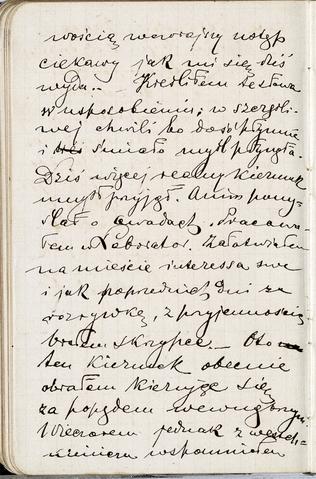 wością wczorajszy ustęp
ciekawy jak mi się dziś
wyda.. — Kreśliłem ze stanu
w usposobieniu; w szczęśli-
wej chwili bo dość płynnie
i śmiało myśl płynęła.
Dziś więcej realny kierunek
myśl przyjęła. Anim pomy-
ślał o owadach. Pracowa-
łem w Laborator. Załatwiałem
na mieście interessa swe
i jak poprzednich dni za
rozrywkę, z przyjemnością
brałem skrzypce. — Oto
ten kierunek obecnie
obrałem kierując się
za popędem wewnętrznym
Wieczorem jednak z westch-
nieniem wspomniałem